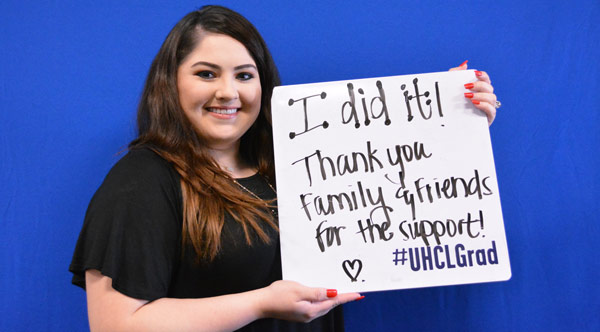 I did it!
Thank you
Family & friends
for the support!
#UHCLGrad